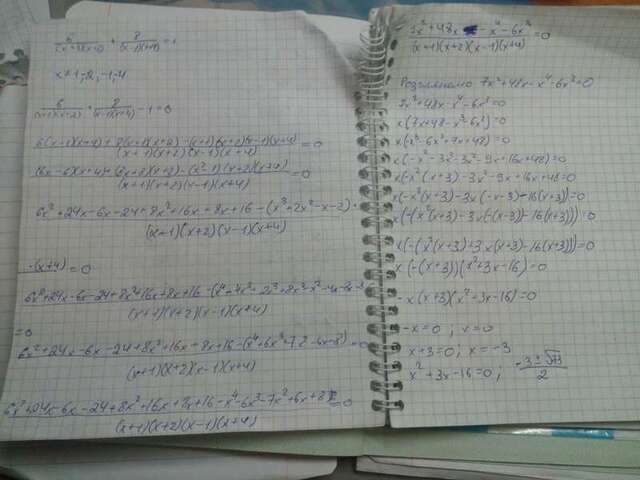 6/(x+1)(x+2) + 8/(x-1)(x+4) = 1
x ≠ 1, -2, -1, -4
6/(x+1)(x+2) + 8/(x-1)(x+4) - 1 = 0
6(x-1)(x+4) + 8(x+1)(x+2) - (x+1)(x+2)(x-1)(x+4)/(x+1)(x+2)(x-1)(x+4) = 0
(6x-6)(x+4) + (8x+8)(x+2) - (x²-1)(x+2)(x+4)/(x+1)(x+2)(x-1)(x+4) = 0
6x²+24x-6x-24+8x²+16x+8x+16-(x³+2x²-x-2)·/(x+1)(x+2)(x-1)(x+4)
·(x+4) = 0
/(x+1)(x+2)(x-1)(x+4)
= 0
6x²+24x-6x-24+8x²+16x+8x+16-(x⁴+6x³+7x²-6x-8)/(x+1)(x+2)(x-1)(x+4) = 0
6x²+24x-6x-24+8x²+16x+8x+16-x⁴-6x³-7x²+6x+8/(x+1)(x+2)(x-1)(x+4) = 0
7x²+48x-x⁴-6x³/(x+1)(x+2)(x-1)(x+4) = 0
Розглянемо 7x²+48x-x⁴-6x³=0
7x²+48x-x⁴-6x³=0
x(7x+48-x³-6x²)=0
x(-x³-6x²+7x+48)=0
x(-x³-3x²-3x²-9x+16x+48)=0
x(-x²(x+3)-3x²-9x+16x+48=0
x(-x²(x+3)-3x(-x-3)-16(x+3))=0
x(-(x²(x+3)-3x(-(x+3))-16(x+3)))=0
x(-(x²(x+3)+3x(x+3)-16(x+3)))=0
x(-(x+3))(x²+3x-16)=0
-x(x+3)(x²+3x-16)=0
-x=0; x=0
x+3=0; x=-3
x²+3x-16=0; -3±√73/2